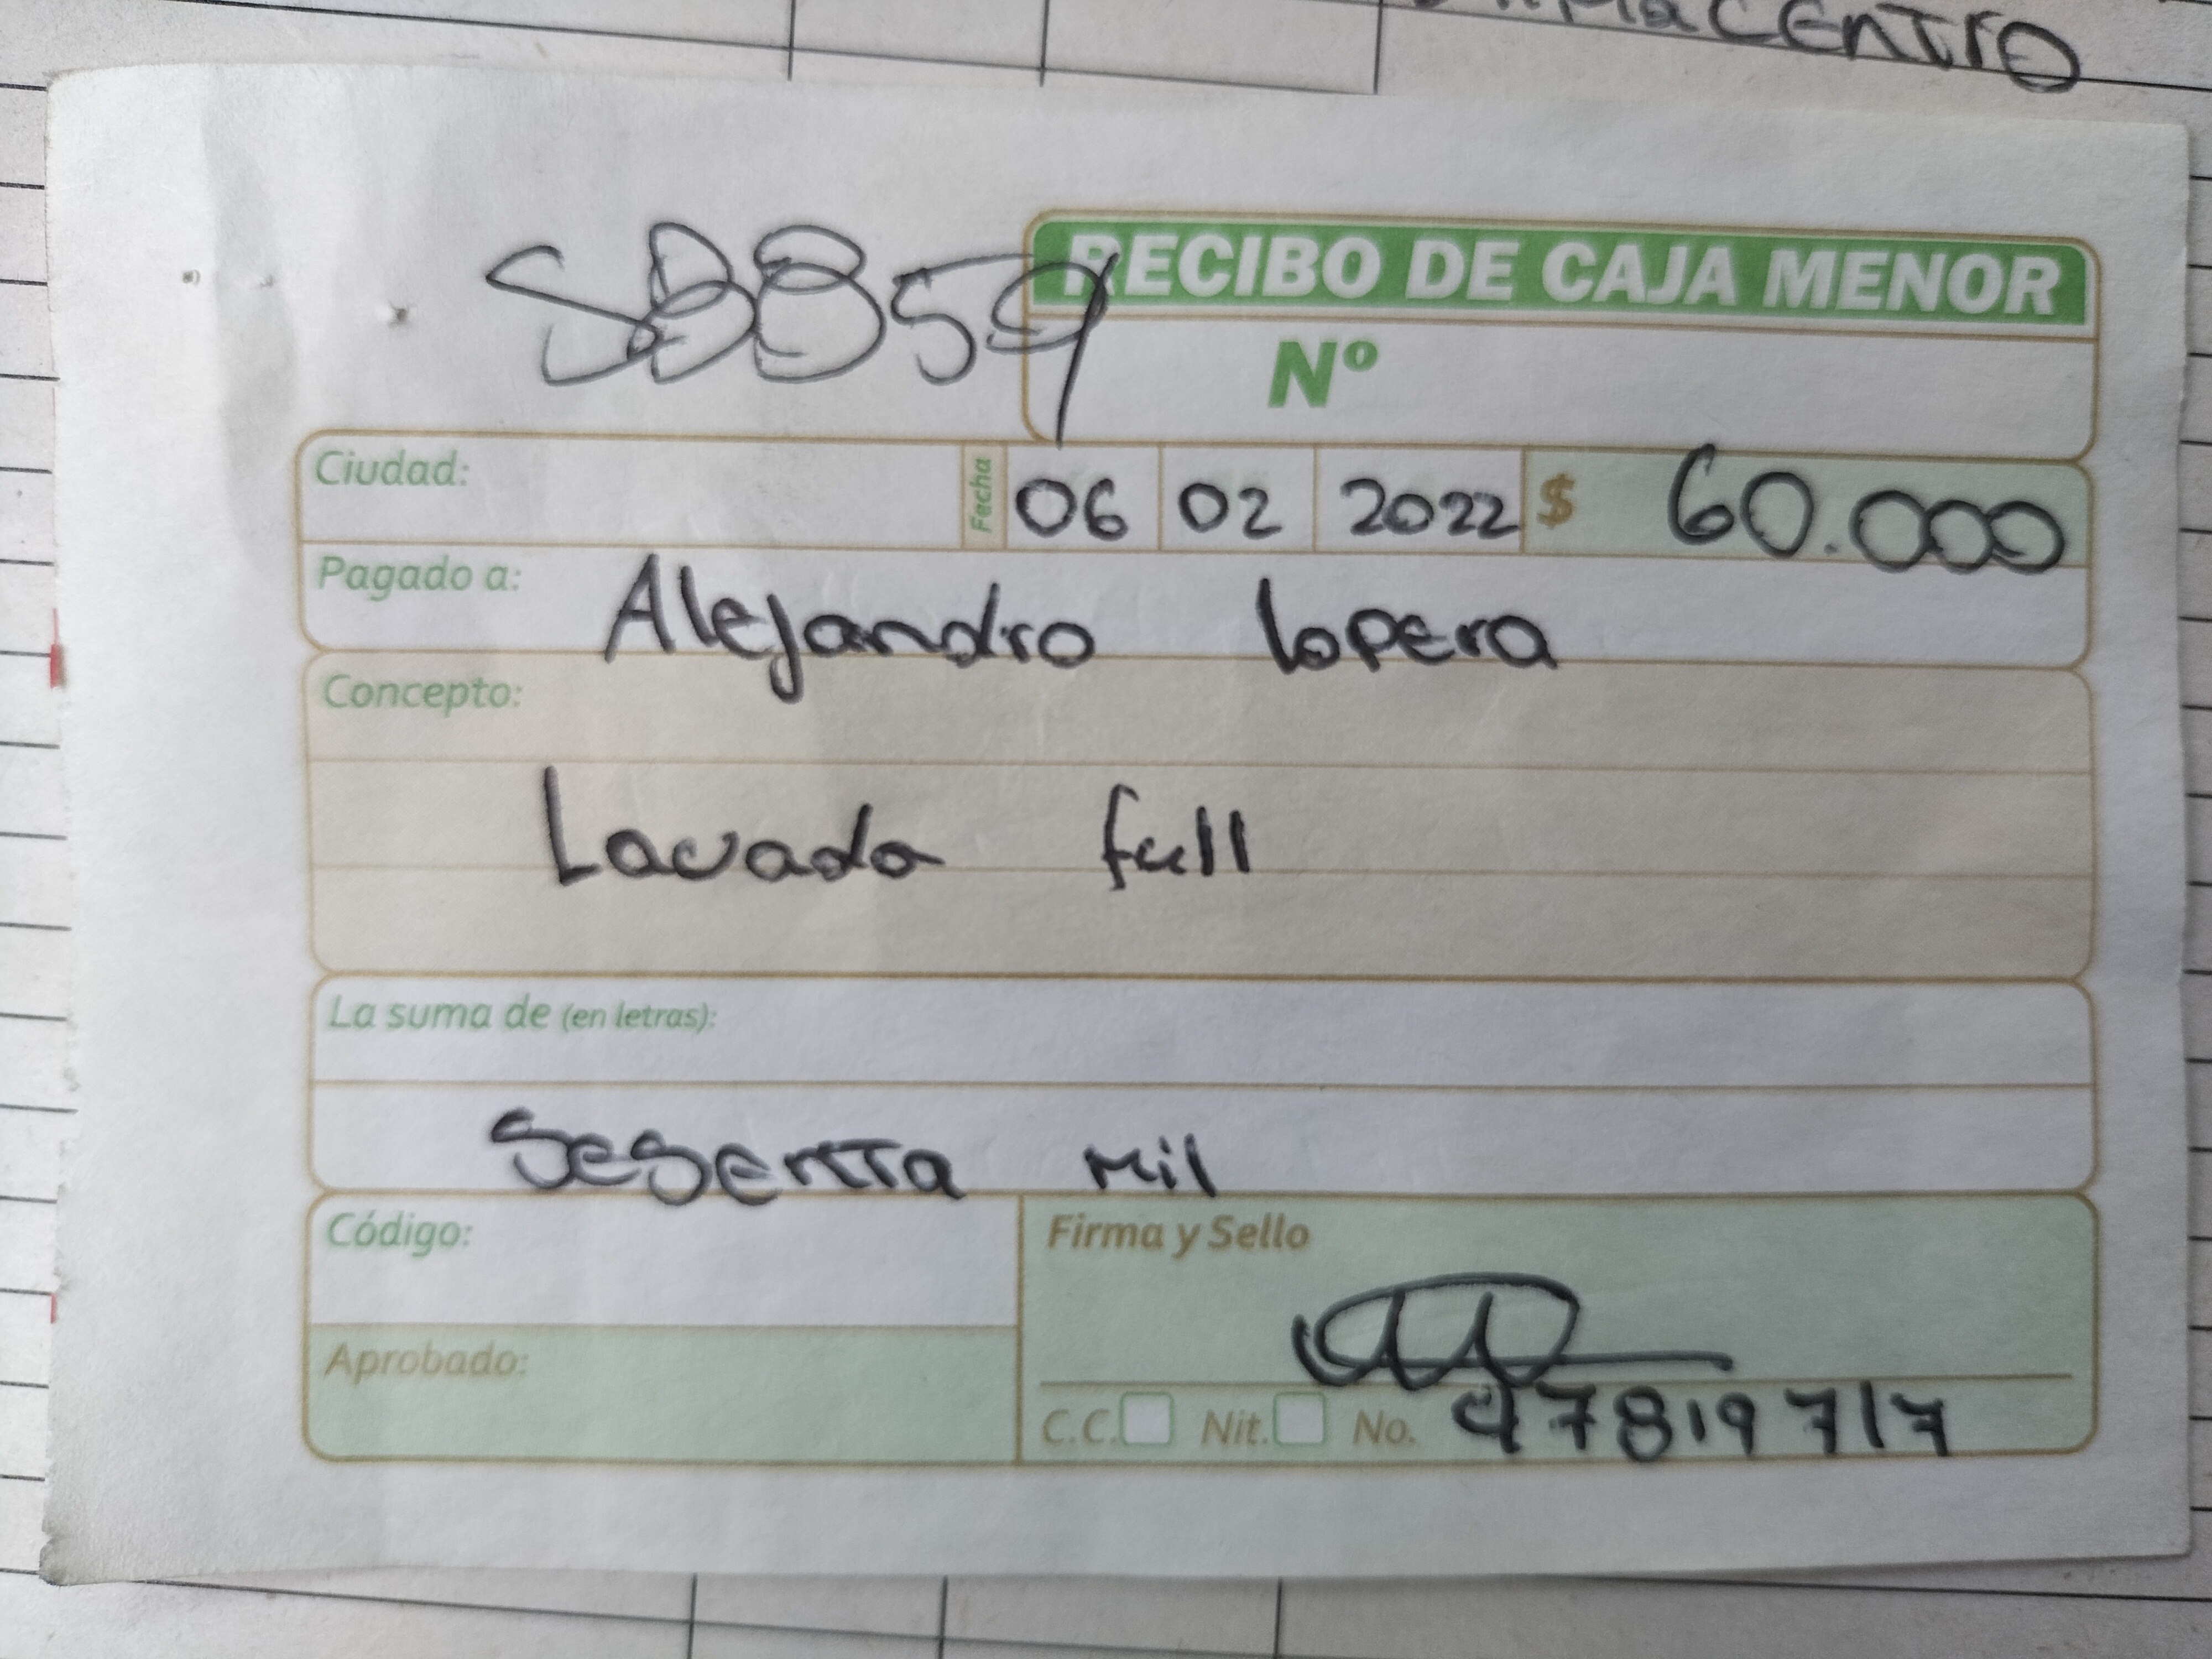 CENTRO
SBB859
RECIBO DE CAJA MENOR
Nº
Ciudad:
Fecha 06 02 2022 $ 60.000
Pagado a: Alejandro lopera
Concepto:
Lavado full
La suma de (en letras):
Sesenta mil
Código:
Firma y Sello
Aprobado:
C.C. Nit. No. 97819717